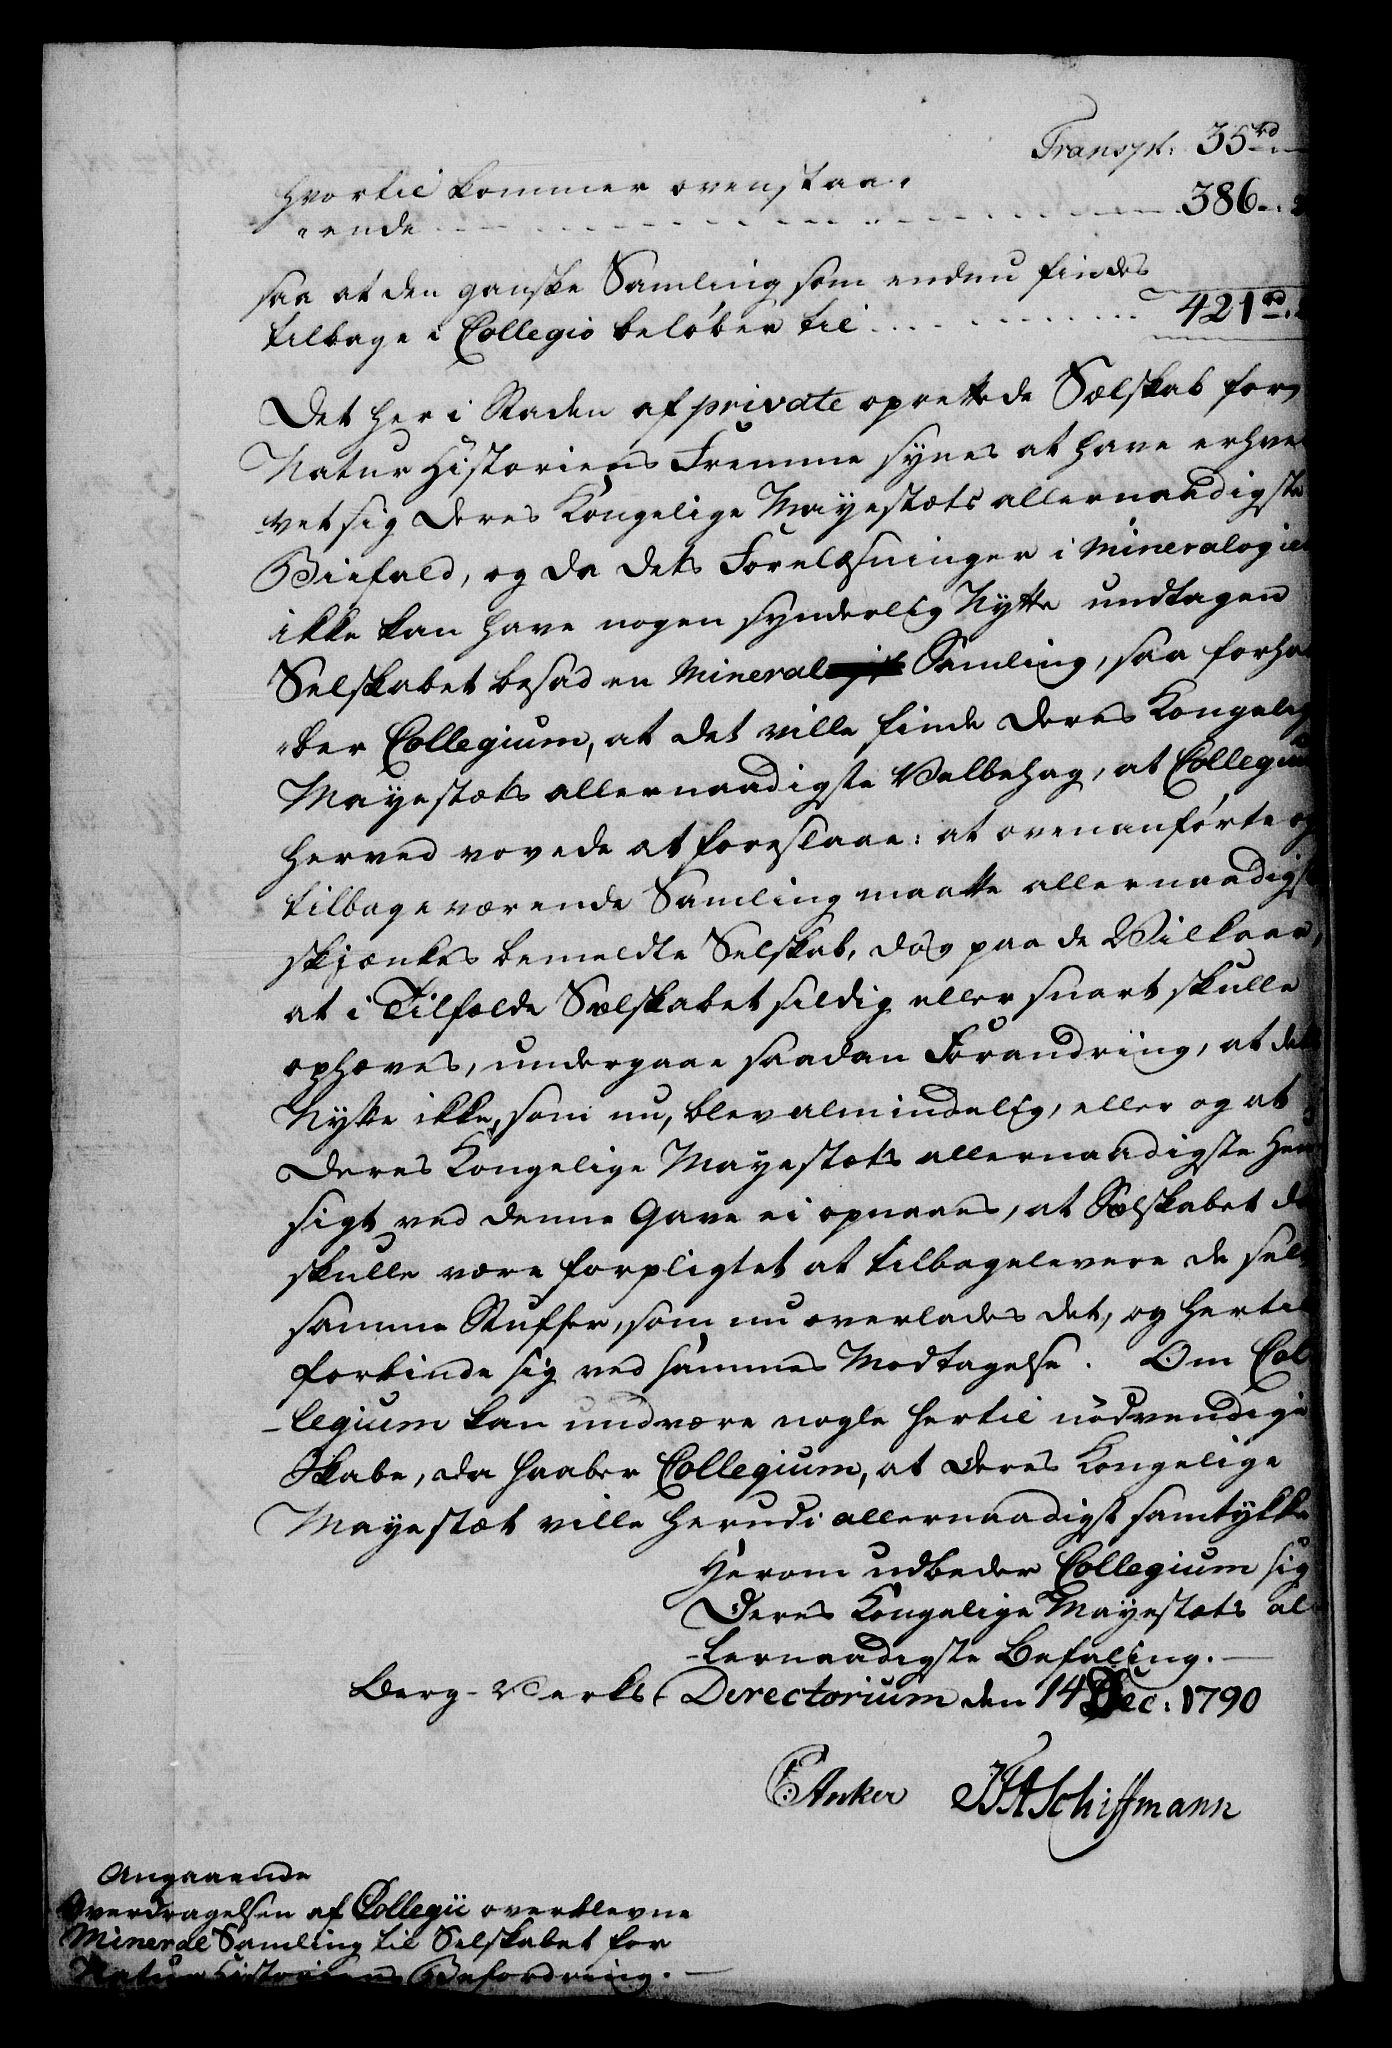 Transpt: 35 rd
hvortil kommer ovenstaa-
-ende 386
saa at den ganske Samling som endnu findes
tilbage i Collegio beløber til 421 rd.
Det her i Staden af private oprettede Sælskab for
Natur Historiens Fremme synes at have erhver
-vet sig Deres Kongelige Mayestæts allernaadigste
Biefald, og da dets Forelæsninger i Mineralogien
ikke kan have nogen synderlig Nytte undtagen
Selskabet besad en Mineral Samling, saa forhaa
-ber Collegium, at det ville finde Deres Kongelige
Mayestæts allernaadigste Velbehag, at Collegium
herved vovede at foreslaae: at ovenanførte og
tilbageværende Samling maatte allernaadigst
skjænkes bemeldte Selskab, dog paa de Vilkaar,
at i Tilfælde Sælskabet sildig eller snart skulle
ophæves, undergaae saadan Forandring, at dets
Nytte ikke, som nu, blev almindelig, eller og at
Deres Kongelige Mayestæts allernaadigste Hen
sigt ved denne Gave ei opnaaes, at Sælskabet da
skulle være forpligtet at tilbagelevere de selv
samme Stuffer, som nu overlades det, og hertil
forbinde sig ved sammes Modtagelse. Om Col
-legium kan undvære nogle hertil nödvendige
Skabe, da haaber Collegium, at Deres Kongelige
Mayestæt ville herudi allernaadigst samtykke
Herom udbeder Collegium sig
Deres Kongelige Mayestæts al-
-lernaadigste Befaling.
Berg-Verks-Directorium den 14 Dec: 1790
C: Anker JFASchiffmann
Angaaende
Overdragelsen af Collegii overblevne
Mineral Samling til Selskabet for
Natur Historiens Befordring.